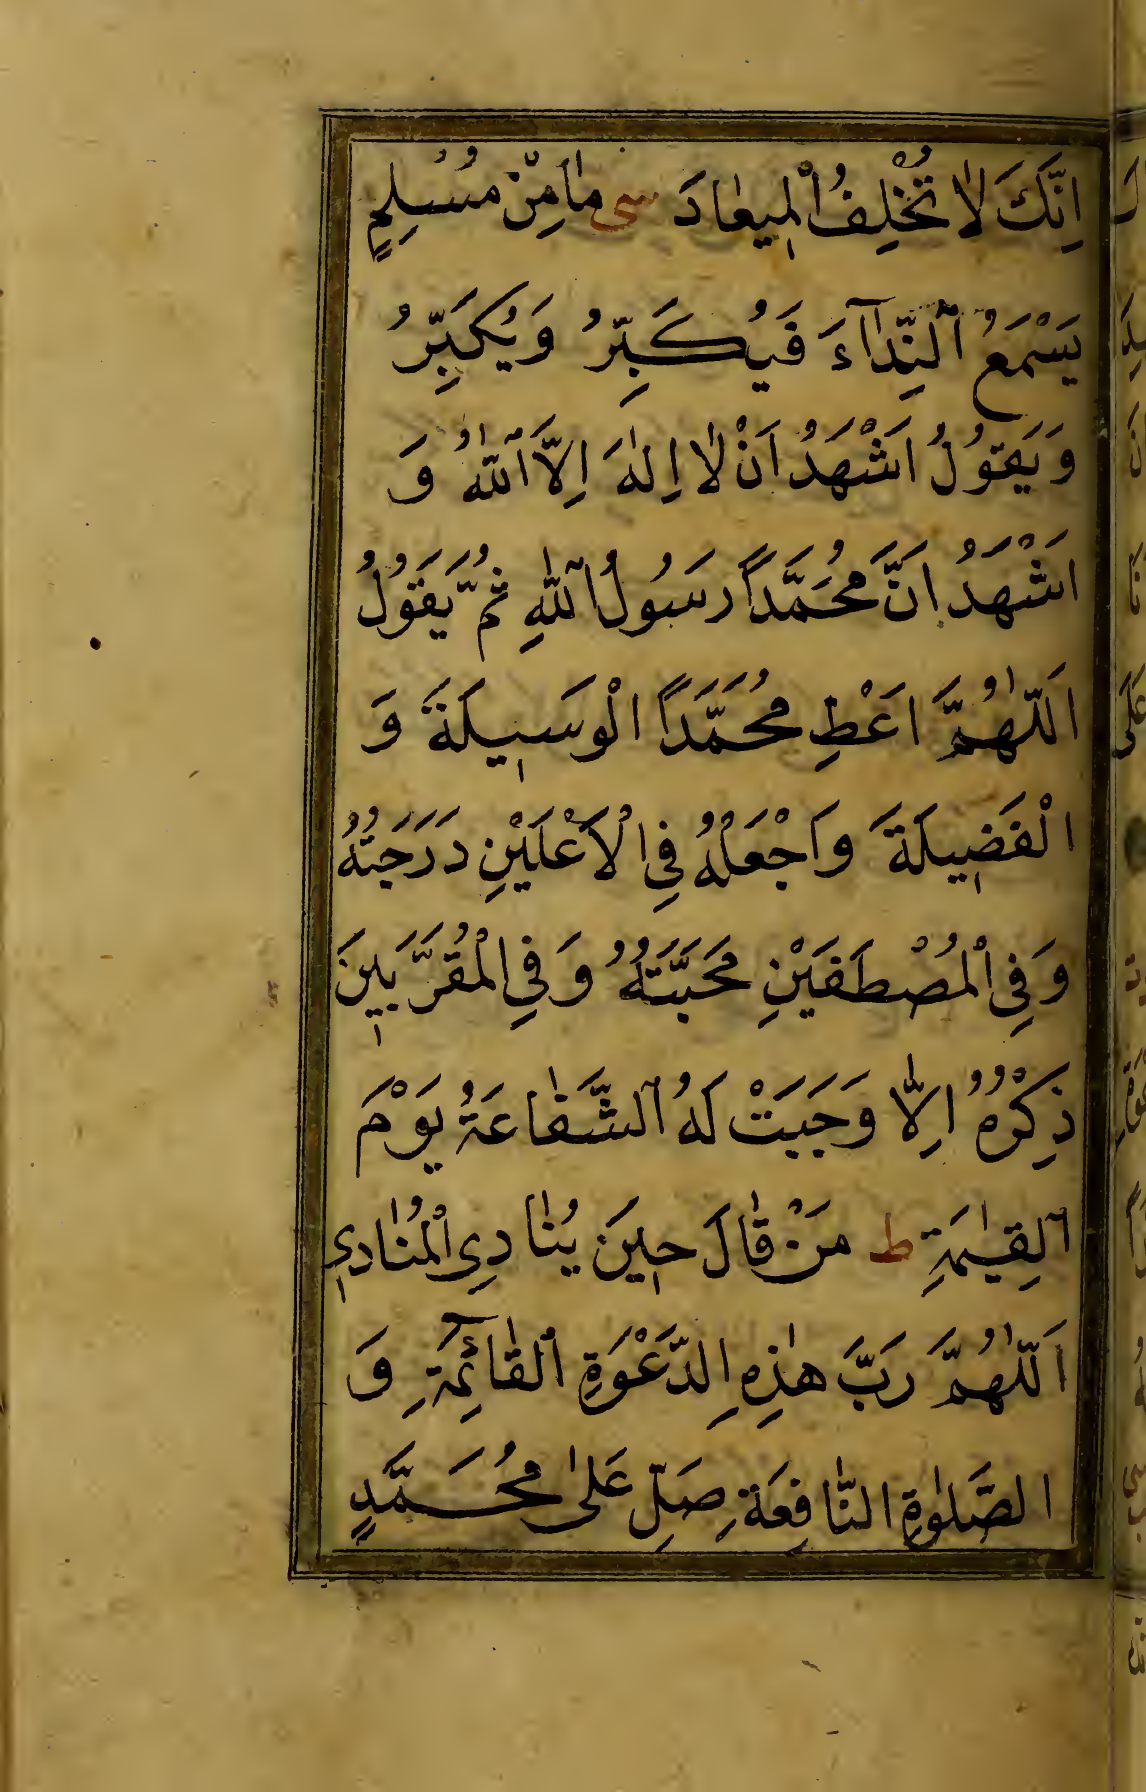 اِنَّكَ لَا تُخْلِفُ الْمِيعَادَ سى مَا مِنْ مُسْلِمٍ
يَسْمَعُ النِّدَآءَ فَيُكَبِّرُ وَيُكَبِّرُ
وَيَقُولُ اَشْهَدُ اَنْ لَا اِلٰهَ اِلَّا اللّٰهُ وَ
اَشْهَدُ اَنَّ مُحَمَّدًا رَسُولُ اللّٰهِ ثُمَّ يَقُولُ
اَللّٰهُمَّ اَعْطِ مُحَمَّدًا الْوَسِيلَةَ وَ
الْفَضِيلَةَ وَاجْعَلْهُ فِي الْاَعْلَيْنِ دَرَجَتُهُ
وَفِي الْمُصْطَفَيْنِ مَحَبَّتُهُ وَفِي الْمُقَرَّبِينَ
ذِكْرُهُ اِلَّا وَجَبَتْ لَهُ الشَّفَاعَةُ يَوْمَ
الْقِيٰمَةِ ط مَنْ قَالَ حِينَ يُنَادِي الْمُنَادِي
اَللّٰهُمَّ رَبَّ هٰذِهِ الدَّعْوَةِ الْقَآئِمَةِ وَ
الصَّلٰوةِ النَّافِعَةِ صَلِّ عَلٰى مُحَمَّدٍ